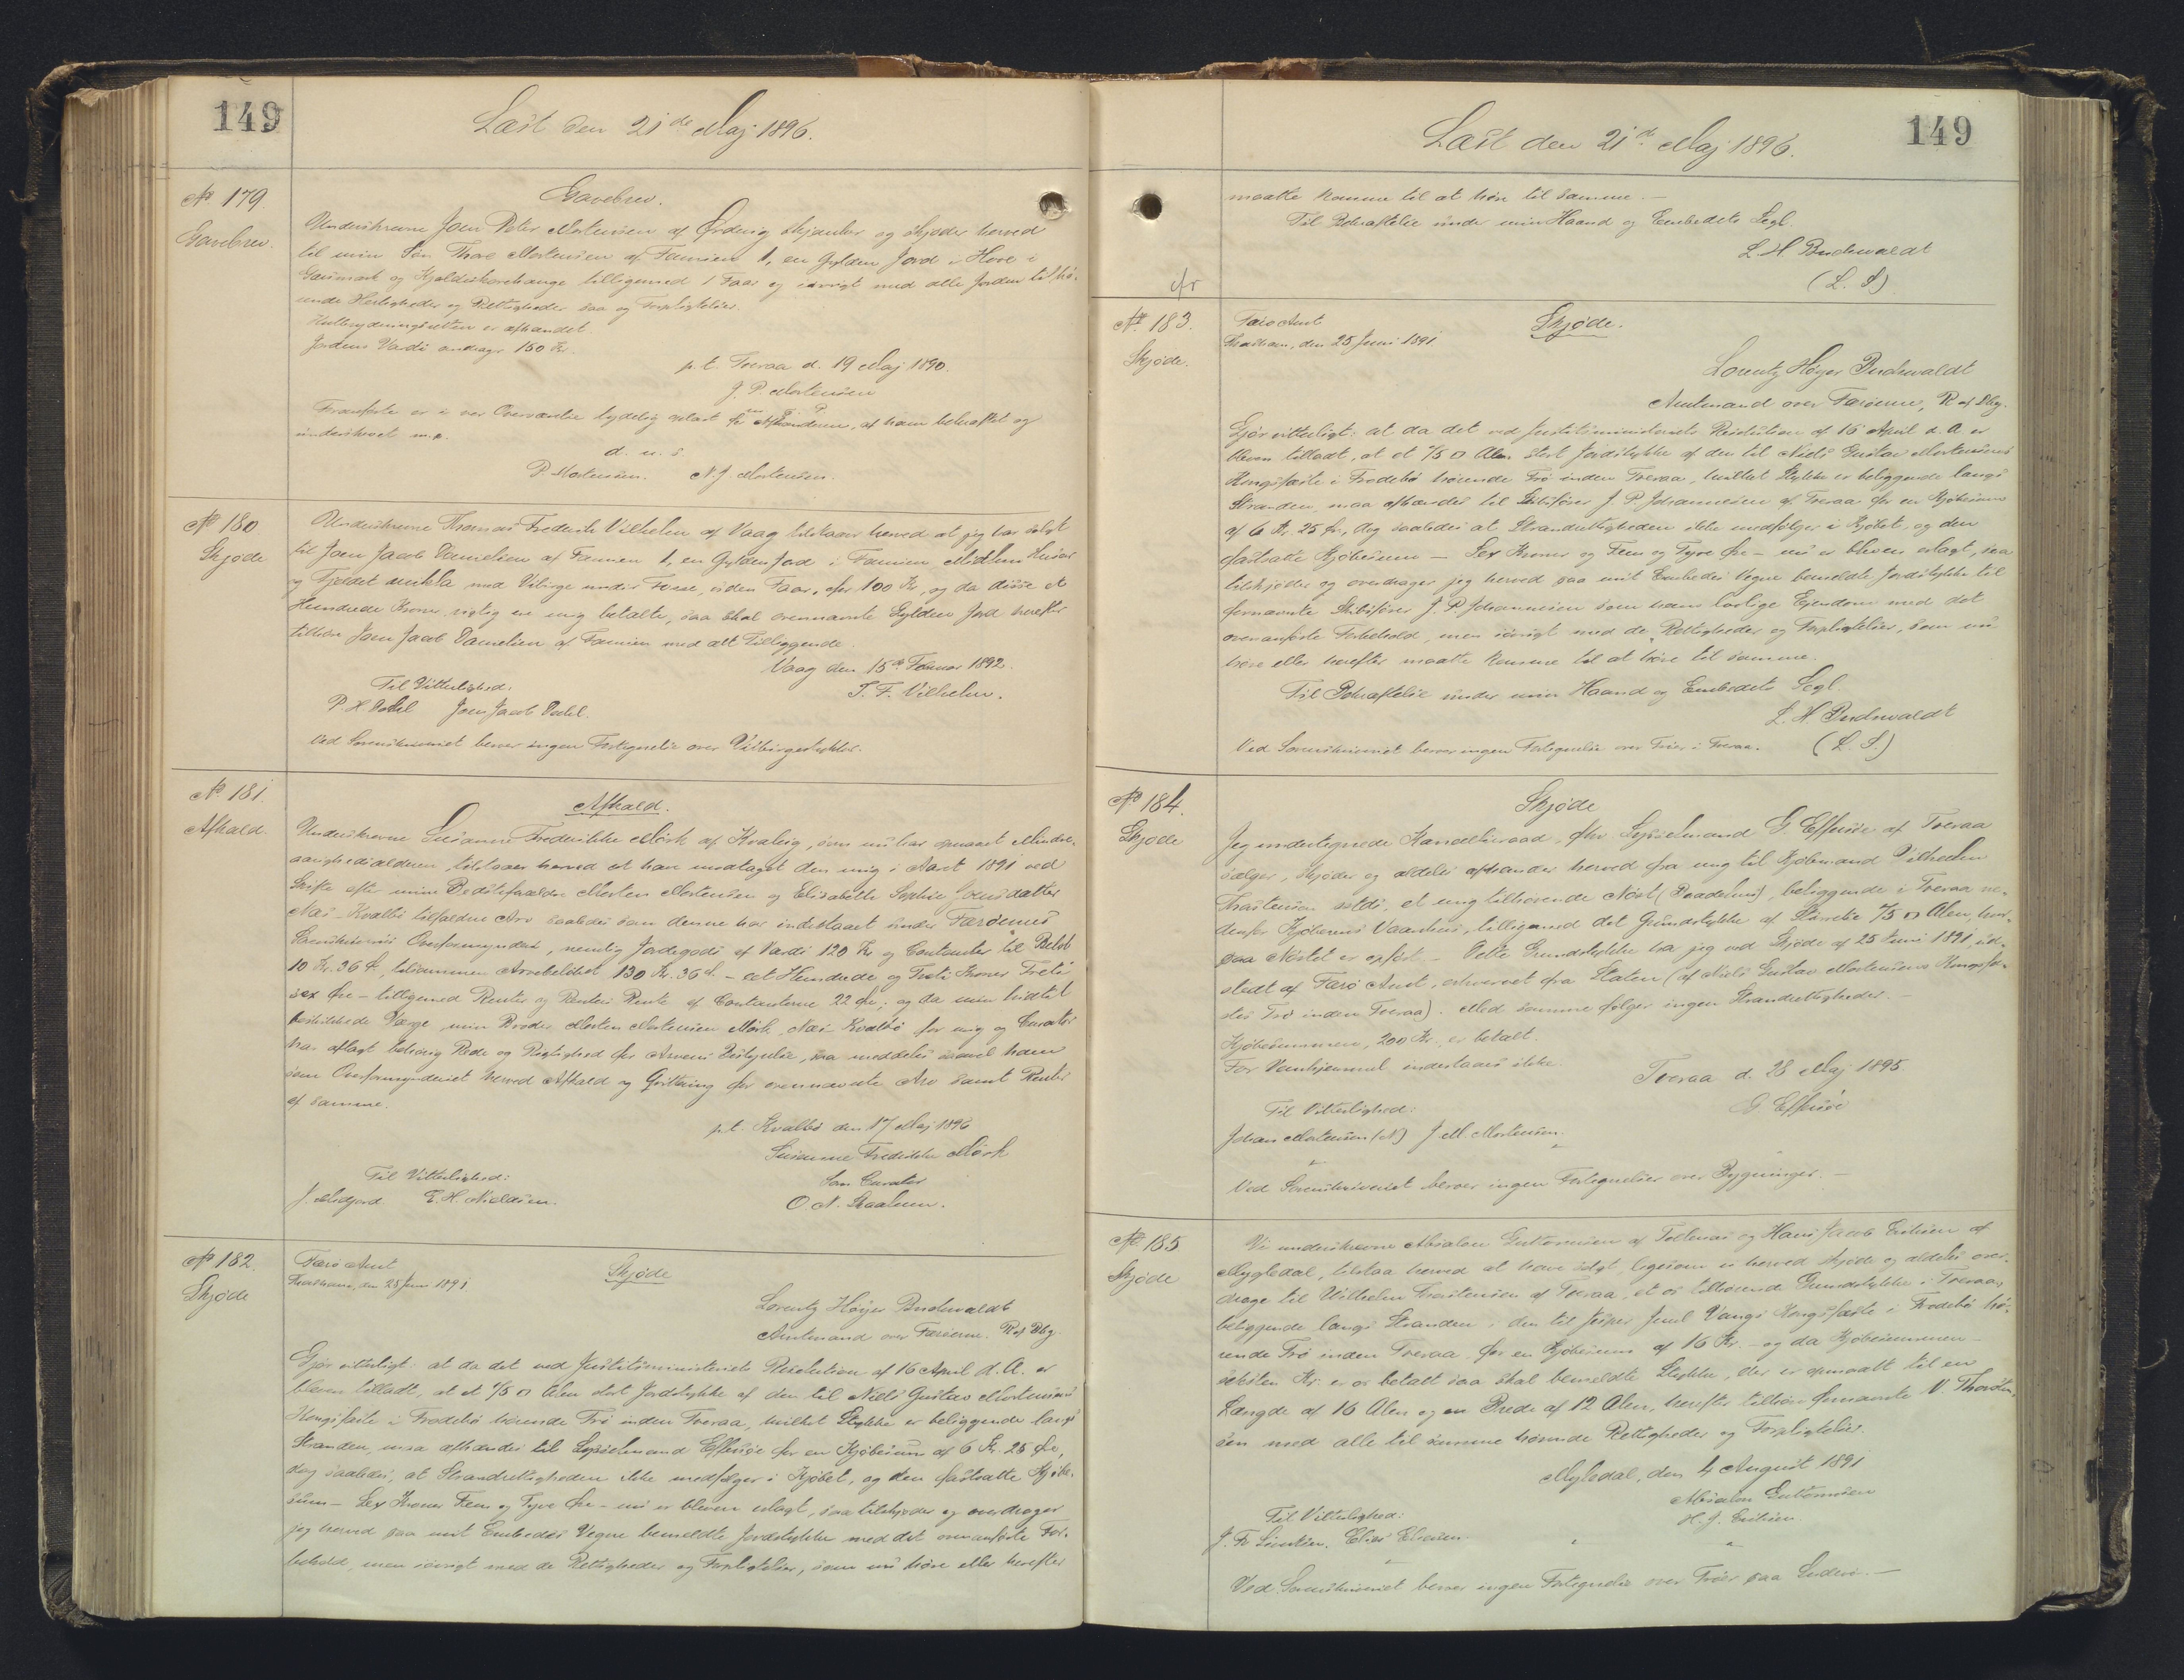 149
Læst den 21de Maj 1896.
No 179.
Gavebrev.
Gavebrev.
Underskrevne Joen Peter Mortensen af Ördevig skjænker og skjøder herved
til min Søn Thore Mortensen af Famien 1, en Gylden Jord i Hove i
og tilligemed 1 Faar og iøvrigt med alle Jorden tilhø-
rende Herligheder og Rettigheder saa og Forpligtelser.
er afhændet.
Jordens Værdi andrager 150 Kr.
p.t. Tveraa d. 19 Maj 1890.
J. P. Mortensen
Foranførte er i vor Overværelse tydelig oplæst for Afhænderen, af ham bekræftet og
underskrevet m.p.
d. u. s.
P. Mortensen. N. J. Mortensen.
No 180
Skjøde
Underskrevne Thomas Frederik Vilhelm af Vaag tilstaaer herved at jeg har solgt
til Joen Jacob Danielsen af Famien 1, en Gylden Jord i Famien Midlum Husar
og Fjeldet med under Fosse, uden Faar, for 100 Kr, og da disse et
Hundrede Kroner rigtig ere mig betalte, saa skal ovennævnte Gylden Jord herefter
tilhøre Joen Jacob Danielsen af Famien med alt Tilliggende.
Vaag den 15de Februar 1892.
T. F. Vilhelm.
Til Vitterlighed:
P. H. Dahl Joen Jacob Dahl.
Ved Sorenskriveriet beroer ingen Fortegnelse over
No 181.
Afkald.
Afkald.
Underskrevne Susanne Frederikke Mörk af Kvalvig, som nu har opnaaet Mindre-
aarighedsalderen, tilstaaer herved at have modtaget den mig i Aaret 1891 ved
Skifte efter mine Bedsteforældre Morten Mortensen og Elisabeth Sophie Joensdatter
Næs-Kvalbø tilfaldne Arv saaledes som denne har indestaaet under Færøernes
Sorenskriveris Overformynderi, nemlig Jordegods af Værdi 120 Kr og Contanter til Beløb
10 Kr. 36 Ø, tilsammen Arvebeløbet 130 Kr. 36 Ø - eet Hundrede og Treti Kroner Treti
sex Øre - tilligemed Renter og Renters Rente af Contanterne 22 Øre; og da min hidtil
beskikkede Værge, min Broder Morten Mortensen Mörk, Næs Kvalbö for mig og Curator
har aflagt behørig Rede og Rigtighed for Arvens Bestyrelse, saa meddeles saavel ham
som Overformynderiet herved Afkald og Qvittering for ovennævnte Arv samt Renter
af samme.
p.t. Kvalbö den 17 Maj 1896
Susanne Frederikke Mörk
Som Curator
O. N.
Til Vitterlighed:
J. Midjord. E. H. Nielsen.
No 182.
Skjøde
Færø Amt
Thorshavn, den 25 Juni 1891.
Skjøde
Lorentz Høyer Buchwaldt
Amtmand over Færöerne. R af Dbg.
Gjør vitterligt: at da det ved Justitsministeriets Resolution af 16 April d. A. er
bleven tilladt, at et □ Alen stort Jordstykke af den til Niels Gustav Mortensens
Kongsfæste i Frodebö hørende Trø inden Tveraa, hvilket Stykke er beliggende langs
Stranden, maa afhændes til Sysselmand Effersøe for en Kjøbesum af 6 Kr. 25 Øre,
dog saaledes, at Strandrettigheden ikke medfølger i Kjøbet, og den fastsatte Kjøbe-
sum - Sex Kroner Fem og Tyve Øre - nu er bleven erlagt, saa tilskjøder og overdrager
jeg herved paa mit Embedes Vegne bemeldte Jordstykke med det ovenanførte For-
behold, men iøvrigt med de Rettigheder og Forpligtelser, som nu høre eller herefter
149
Læst den 21de Maj 1896.
maatte komme til at høre til samme. -
Til Bekræftelse under min Haand og Embedets Segl.
L. H. Buchwaldt
(L. S.)
No 183.
Skjøde.
Færø Amt
Thorshavn, den 25 Juni 1891
Skjøde.
Lorentz Høyer Buchwaldt
Amtmand over Færöerne, R af Dbg.
Gjør vitterligt: at da det ved Justitsministeriets Resolution af 16 April d. A. er
bleven tilladt, at et □ Alen stort Jordstykke af den til Niels Gustav Mortensens
Kongsfæste i Frodebö hørende Trø inden Tveraa, hvilket Stykke er beliggende langs
Stranden, maa afhændes til Skibsfører J. P. Johannesen af Tveraa for en Kjøbesum
af 6 Kr. 25 Øre, dog saaledes at Strandrettigheden ikke medfølger i Kjøbet, og den
fastsatte Kjøbesum - Sex Kroner og Fem og Tyve Øre - nu er bleven erlagt, saa
tilskjøder og overdrager jeg herved paa mit Embedes Vegne bemeldte Jordstykke til
fornævnte Skibsfører J. P. Johannesen som hans lovlige Ejendom med det
ovenanførte Forbehold, men iøvrigt med de Rettigheder og Forpligtelser, som nu
høre eller herefter maatte komme til at høre til samme.
Til Bekræftelse under min Haand og Embedets Segl.
L. H. Buchwaldt
(L. S.)
Ved Sorenskriveriet beroer ingen Fortegnelse over Trøer i Tveraa.
No 184.
Skjøde
Skjøde
Jeg undertegnede Kancelliraad, fhv. Sysselmand G. Effersøe af Tveraa
sælger, skjøder og aldeles afhænder herved fra mig til Kjøbmand Vilhelm
Thorstensen solds. et mig tilhørende Nøst (Baadehus), beliggende i Tveraa ne-
denfor Kjøberens Vaanhus, tilligemed det Grundstykke af Størrelse □ Alen, hvor-
paa Nøstet er opført. - Dette Grundstykke har jeg ved Skjøde af 25 Juni 1891, ud-
stedt af Færö Amt, erhvervet fra Staten (af Niels Gustav Mortensens Kongsfæ-
stes Trø inden Tveraa). Med samme følger ingen Strandrettigheder. -
Kjøbesummen, 200 Kr. er betalt.
For Vanhjemmel indestaaes ikke.
Tveraa d. 28 Maj 1895.
G. Effersøe
Til Vitterlighed:
Johan Mortensen (N) J. M. Mortensen.
Ved Sorenskriveriet beroer ingen Fortegnelser over Bygninger. -
No 185
Skjøde
Vi underskrevne Absalon Guttormsen af Tolleraas og Hans Jacob Eriksen af
Mygledal, tilstaa herved at have solgt, ligesom vi herved skjøde og aldeles over-
drage til Wilhelm Thorstensen af Tveraa, et os tilhørende Grundstykke i Tveraa,
beliggende langs Stranden i den til Jesper Juul Vangs Kongsfæste i Frodebö hø-
rende Trø inden Tveraa, for en Kjøbesum af 16 Kr. - og da Kjøbesummen -
seksten Kr er os betalt saa skal bemeldte Stykke, der er opmaalt til en
Længde af 16 Alen og en Brede af 12 Alen, herefter tilhøre fornævnte V. Thorsten-
sen med alle til samme hørende Rettigheder og Forpligtelser.
Mygledal, den 4 August 1891
Absalon Guttormsen
H. J. Eriksen
Til Vitterlighed:
J. Fr. Elias
Ved Sorenskriveriet beroer ingen Fortegnelse over Trøer paa Suderö. -